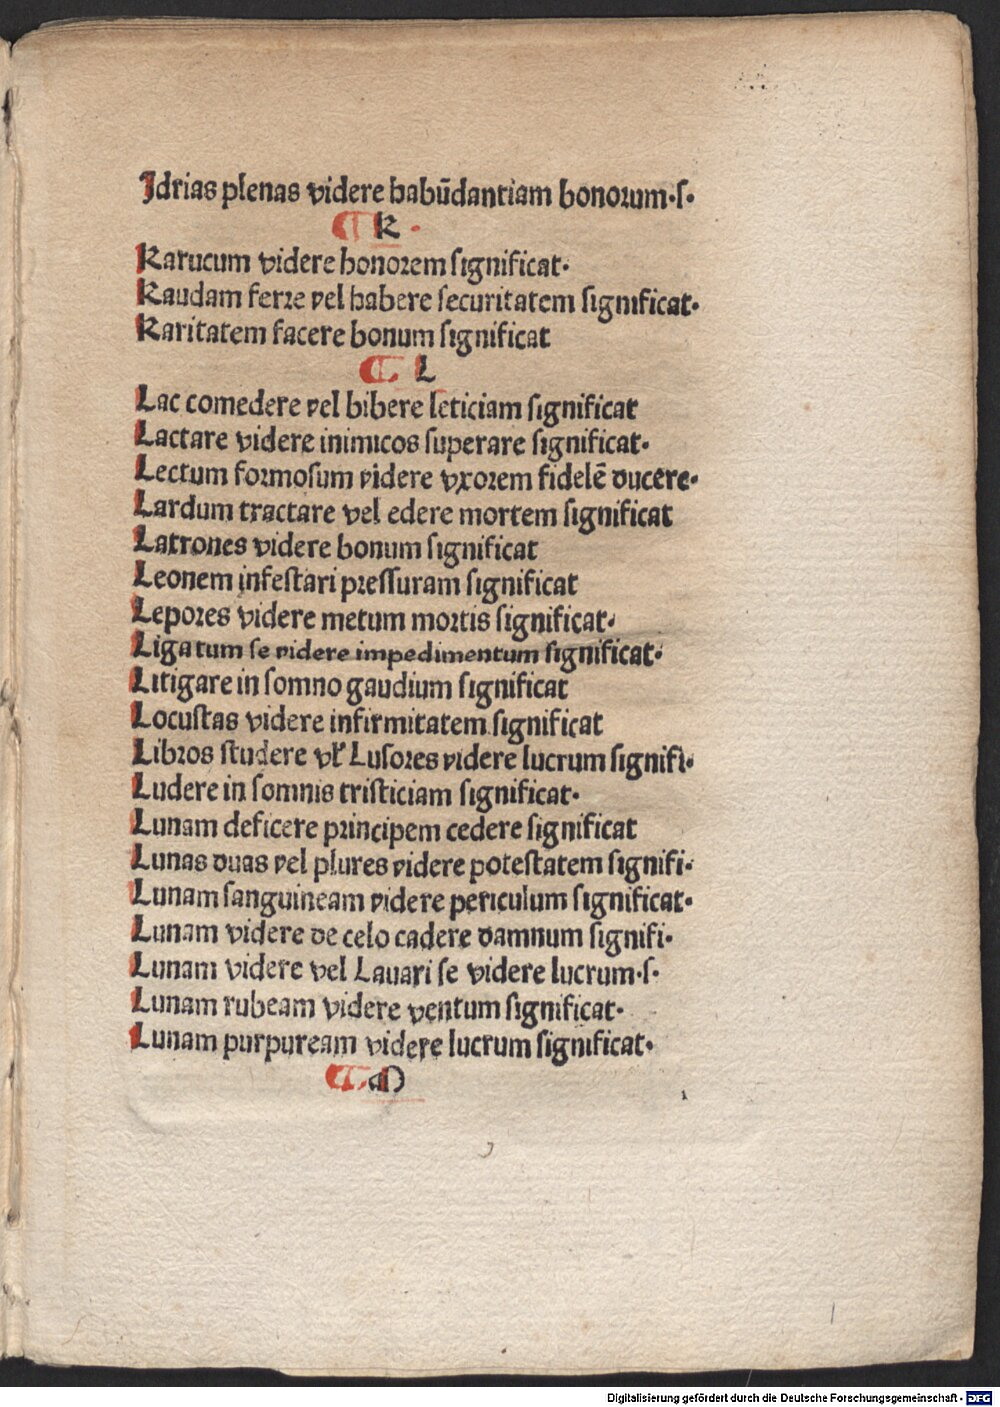 Idrias plenas videre habūdantiam bonorum·s·
¶ K·
Karucum videre honorem significat·
Kaudam ferre vel habere securitatem significat·
Karitatem facere bonum significat
¶ L
Lac comedere vel bibere leticiam significat
Lactare videre inimicos superare significat·
Lectum formosum videre vxorem fidelē ducere·
Lardum tractare vel edere mortem significat
Latrones videre bonum significat
Leonem infestari pressuram significat
Lepores videre metum mortis significat·
Ligatum se videre impedimentum significat·
Litigare in somno gaudium significat
Locustas videre infirmitatem significat
Libros studere vł Lusores videre lucrum signifi·
Ludere in somnis tristiciam significat·
Lunam deficere principem cedere significat
Lunas duas vel plures videre potestatem signifi·
Lunam sanguineam videre periculum significat·
Lunam videre de celo cadere damnum signifi·
Lunam videre vel Lauari se videre lucrum·s·
Lunam rubeam videre ventum significat·
Lunam purpuream videre lucrum significat·
¶ M
Digitalisierung gefördert durch die Deutsche Forschungsgemeinschaft - DFG